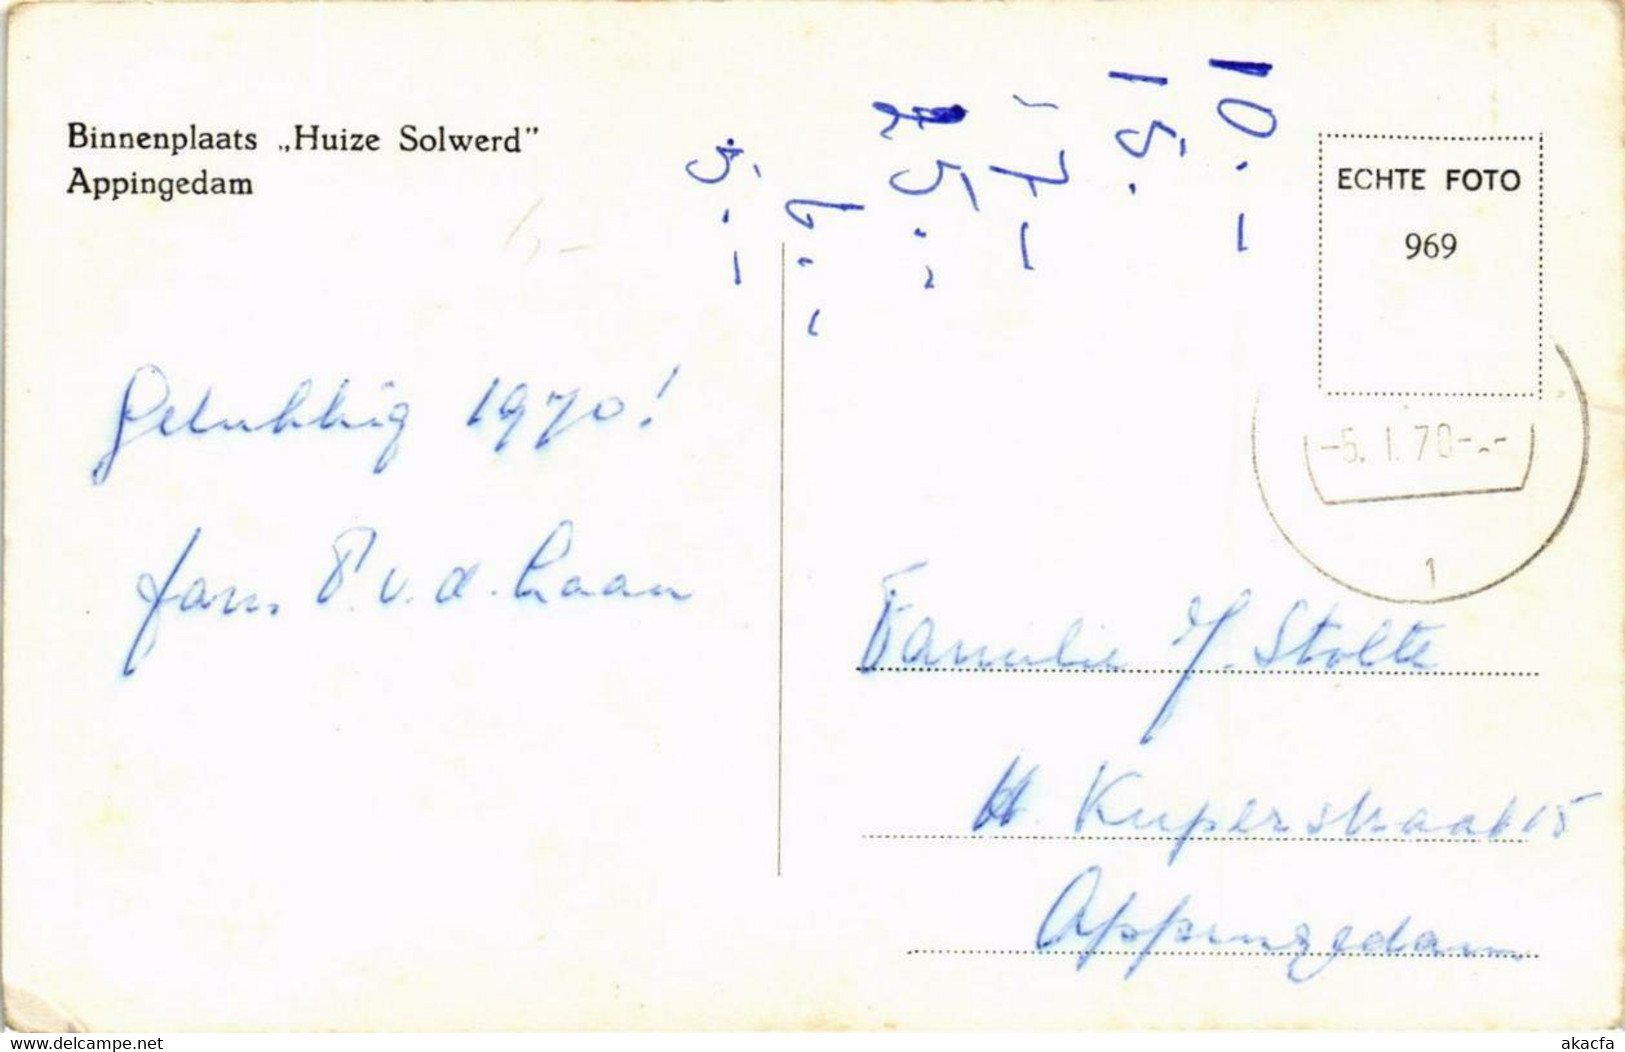 Binnenplaats „Huize Solwerd”
Appingedam
ECHTE FOTO
969
-5.I.70-.-
1
Gelukkig 1970!
fam. P. v. d. Laan
Familie J. Stolte
H. Kuperstraat 15
Appingedam
delcampe.net
akacfa